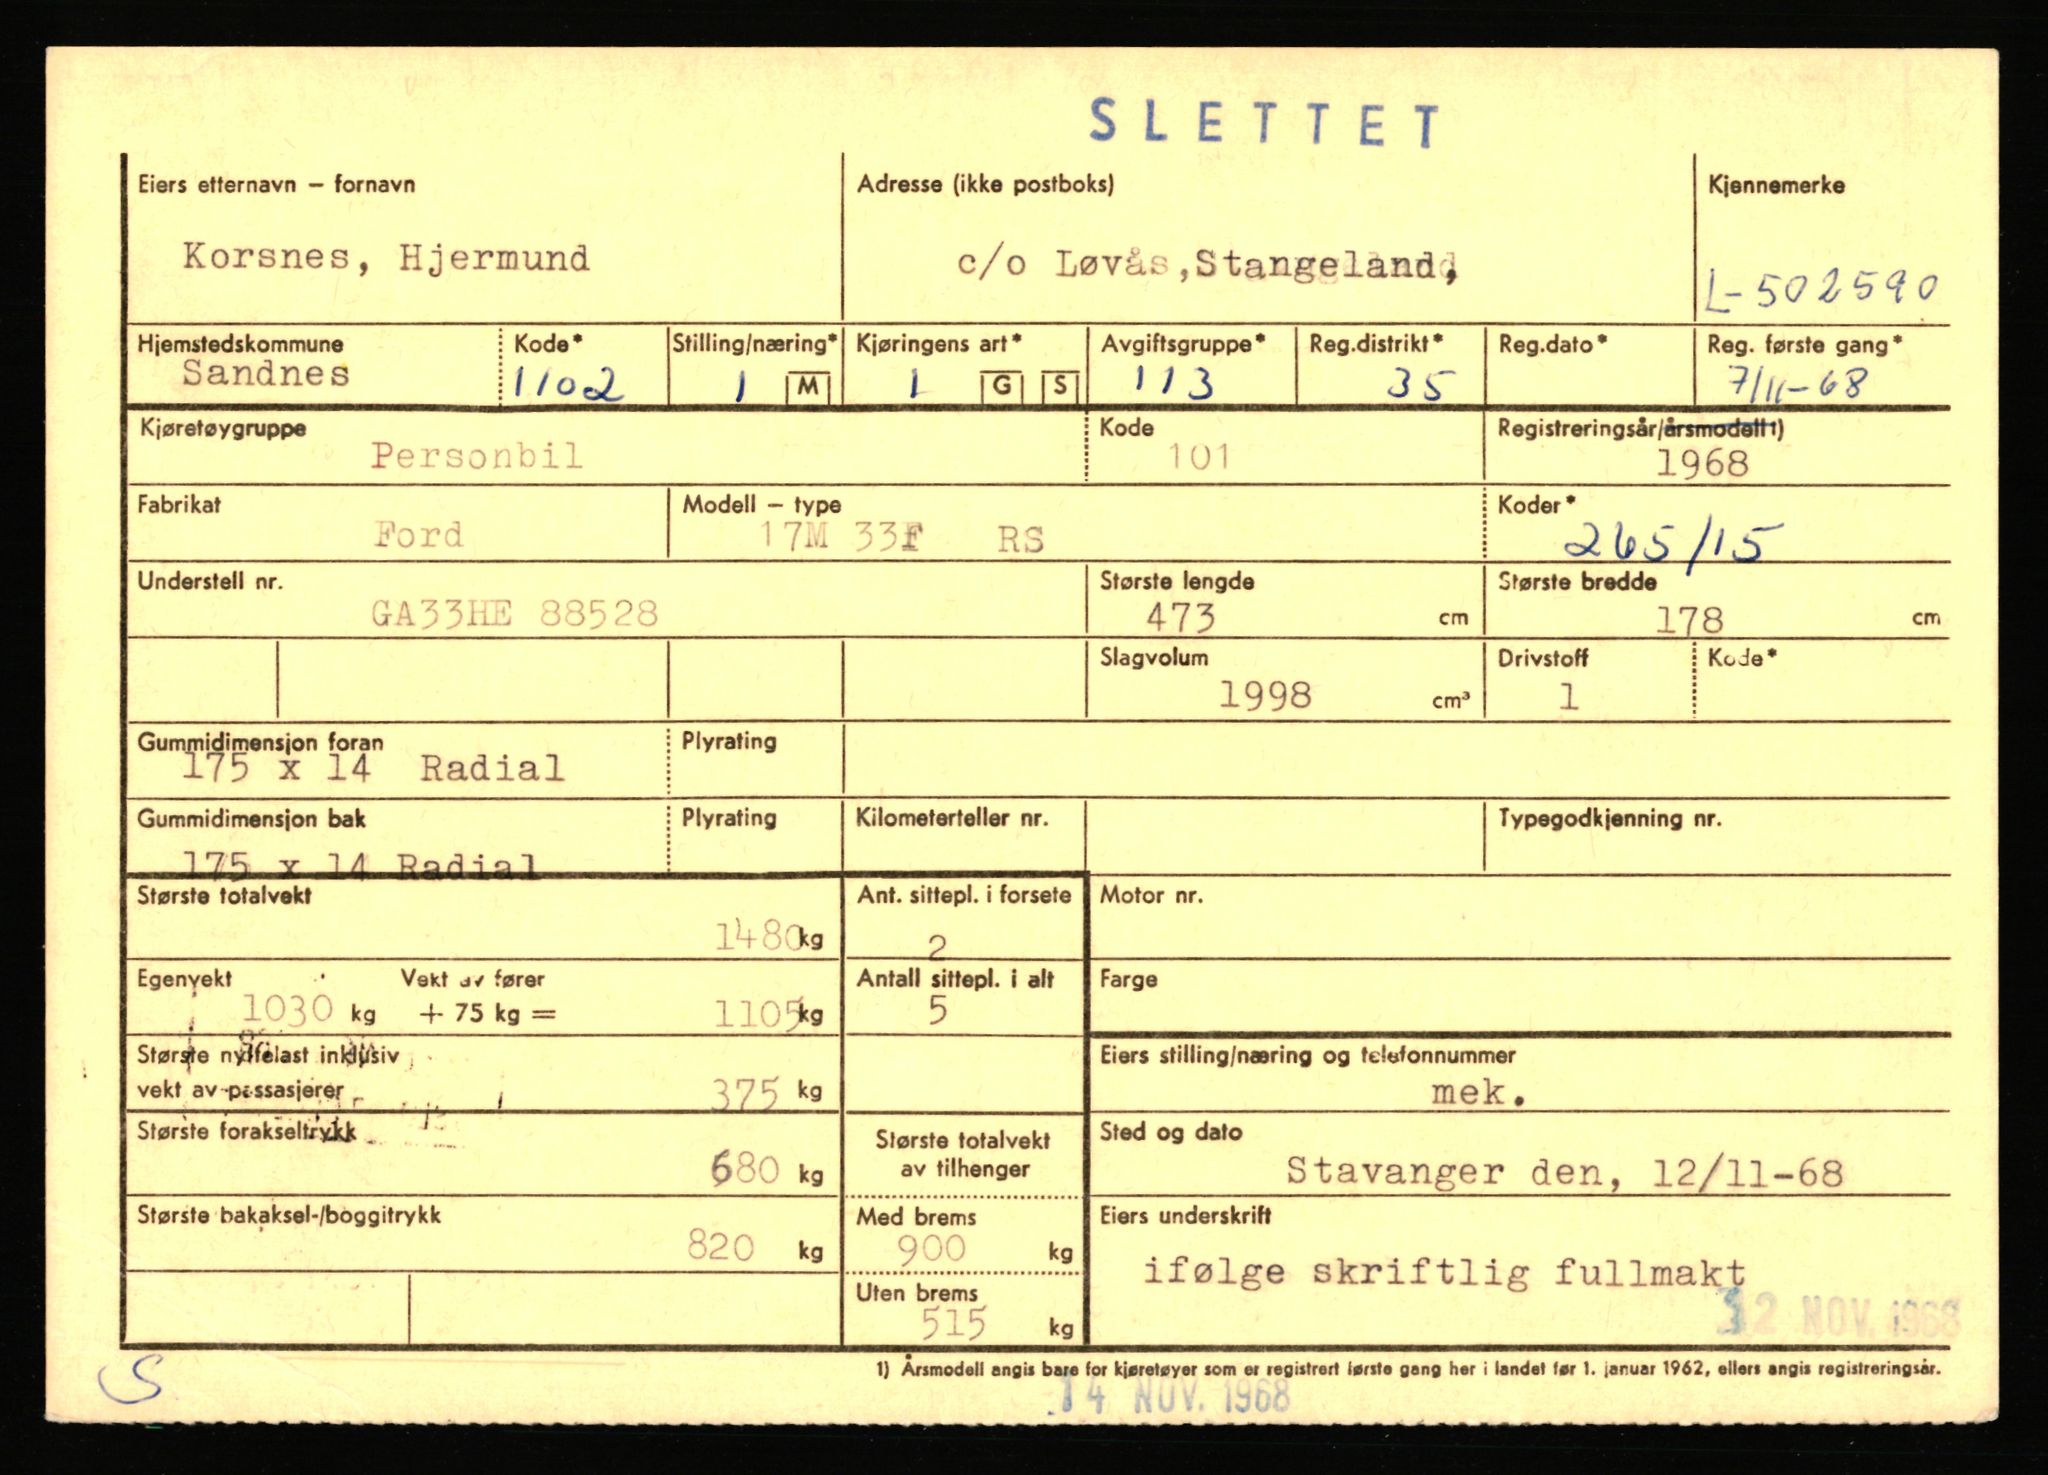 SLETTET
Eiers etternavn – fornavn
Adresse (ikke postboks)
Kjennemerke
Korsnes, Hjermund
c/o Løvås, Stangeland,
L-502590
Hjemstedskommune
Kode*
Stilling/næring*
Kjøringens art*
Avgiftsgruppe*
Reg.distrikt*
Reg.dato*
Reg. første gang*
Sandnes
1102
1 M
1 G S
113
35
7/11-68
Kjøretøygruppe
Kode
Registreringsår/årsmodell 1)
Personbil
101
1968
Fabrikat
Modell – type
Koder*
Ford
17M 33F RS
265/15
Understell nr.
Største lengde
Største bredde
GA33HE 88528
473 cm
178 cm
Slagvolum
Drivstoff
Kode*
1998 cm³
1
Gummidimensjon foran
Plyrating
175 x 14 Radial
Gummidimensjon bak
Plyrating
Kilometerteller nr.
Typegodkjenning nr.
175 x 14 Radial
Største totalvekt
Ant. sittepl. i forsete
Motor nr.
1480 kg
2
Egenvekt
Vekt av fører
Antall sittepl. i alt
Farge
1030 kg + 75 kg = 1105 kg
5
Største nyttelast inklusiv
vekt av passasjerer
375 kg
Eiers stilling/næring og telefonnummer
mek.
Største forakseltrykk
680 kg
Største totalvekt
av tilhenger
Sted og dato
Stavanger den, 12/11-68
Største bakaksel-/boggitrykk
820 kg
Med brems
900 kg
Eiers underskrift
ifølge skriftlig fullmakt
Uten brems
515 kg
12 NOV. 1968
S
1) Årsmodell angis bare for kjøretøyer som er registrert første gang her i landet før 1. januar 1962, ellers angis registreringsår.
14 NOV. 1968